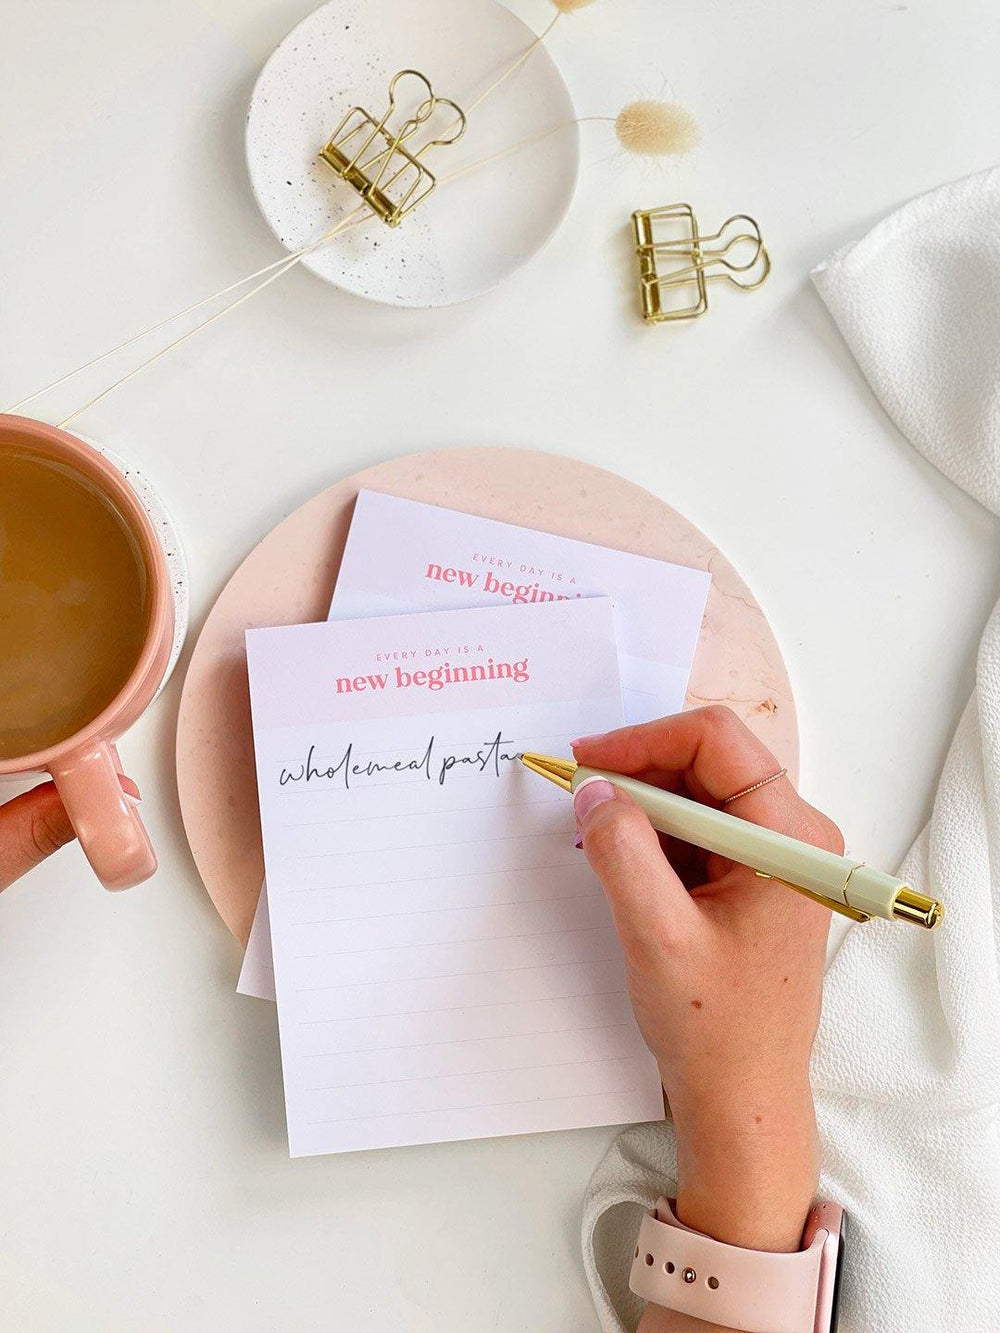 EVERY DAY IS A
new beginni
EVERY DAY IS A
new beginning
wholemeal pasta